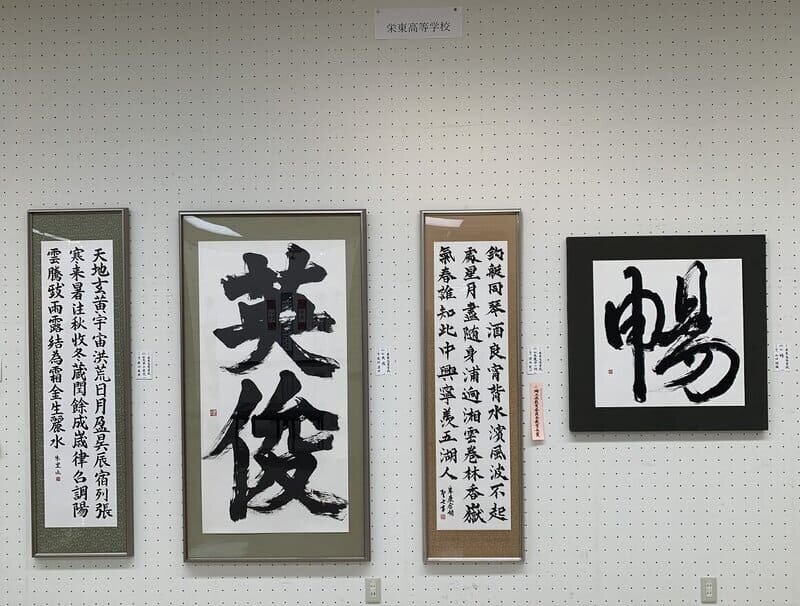 栄東高等学校
天地玄黄宇宙洪荒日月盈昃辰宿列張
寒来暑往秋收冬蔵閏餘成歳律呂調陽
雲騰致雨露結為霜金生麗水
英俊
釣艇同琴酒良宵背水濱風波不起
處星月盡随身浦逈湘雲巻林香嶽
氣春誰知此中興寧羨五湖人
暢